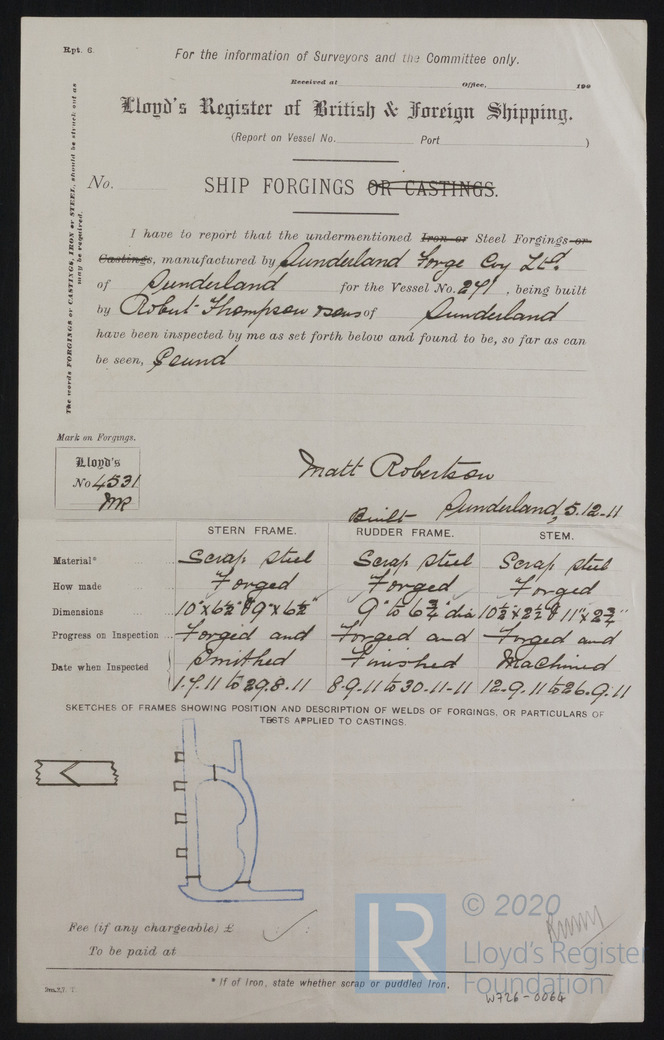 Rpt. 6.
For the information of Surveyors and the Committee only.
Received at Office, 190
Lloyd's Register of British & Foreign Shipping.
(Report on Vessel No. Port )
No. SHIP FORGINGS OR CASTINGS.
The words FORGINGS or CASTINGS, IRON or STEEL, should be struck out as
may be required.
I have to report that the undermentioned Iron or Steel Forgings or
Castings, manufactured by Sunderland Forge Coy Ltd.
of Sunderland for the Vessel No. 271, being built
by Robert Thompson & Sons of Sunderland
have been inspected by me as set forth below and found to be, so far as can
be seen, Sound
Mark on Forgings.
Lloyd's
No 4531
MR
Matt Robertson
Sunderland, 5.12-11
Built
STERN FRAME. RUDDER FRAME. STEM.
Material* Scrap Steel Scrap Steel Scrap Steel
How made Forged Forged Forged
Dimensions 10" x 6½" & 9" x 6½" 9" to 6¾" dia 10½" x 2½" & 11" x 2¾"
Progress on Inspection Forged and Forged and Forged and
Smithed Finished Machined
Date when Inspected 1.7.11 to 29.8.11 8-9.11 to 30-11-11 12-9.11 to 26.9.11
SKETCHES OF FRAMES SHOWING POSITION AND DESCRIPTION OF WELDS OF FORGINGS, OR PARTICULARS OF
TESTS APPLIED TO CASTINGS.
Fee (if any chargeable) £
To be paid at
* If of Iron, state whether scrap or puddled Iron.
LR
© 2020
Lloyd's Register
Foundation
W726-0064